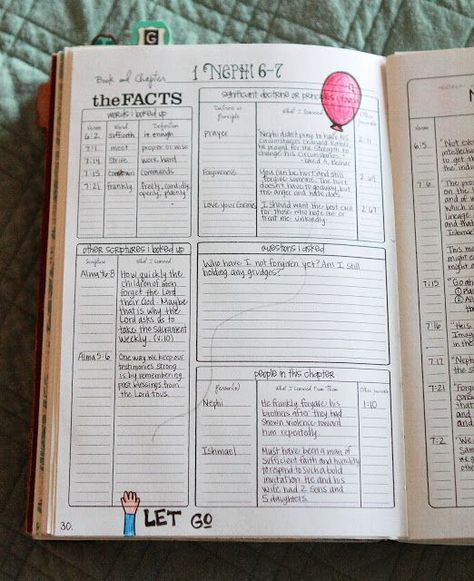 G
Book and Chapter
1 NEPHI 6-7
the FACTS
words i looked up
Verse Word Definition
6:2 sufficeth is enough
7:1 meet proper or wise
7:14 strive work, hard
7:15 commands
5:21 frankly freely, candidly,
openly, plainly
significant doctrine or principles
Doctrine or
Principle
What I Learned
Prayer Nephi didn't pray to have his 2:11
circumstances changed. Rather,
he prayed for the strength to
change his circumstances.
- David A. Bednar
Forgiveness You can be hurt and still
forgive someone. The hurt
doesn't have to go away, but
the anger and hate does.
Love your Enemies I should want the best even
for those who hate me or
treat me unkindly.
other scriptures i looked up
Scripture What I Learned
Alma 46:8 How quickly the
children of men
forget the Lord
their God. Maybe
that is why the
Lord asks us to
take the Sacrament
weekly. (v.10)
Alma 5:6 One way we keep our
testimonies strong
is by remembering
past blessings from
the Lord thus.
questions i asked
Who have I not forgiven yet? Am I still
holding any grudges?
people in this chapter
Person(s) What I Learned From Them
Nephi He frankly forgave his 1:10
brothers after they had
shown violence toward
him repeatedly.
Ishmael Must have been a man of
sufficient faith and humility
to respond to such a bold
invitation. He and his
wife had 2 sons and
5 daughters.
30.
LET GO
6:5 "Not
7:6 The
7:15 "Go
7:16 "This
might
7:17 "
7:21 "
7:2